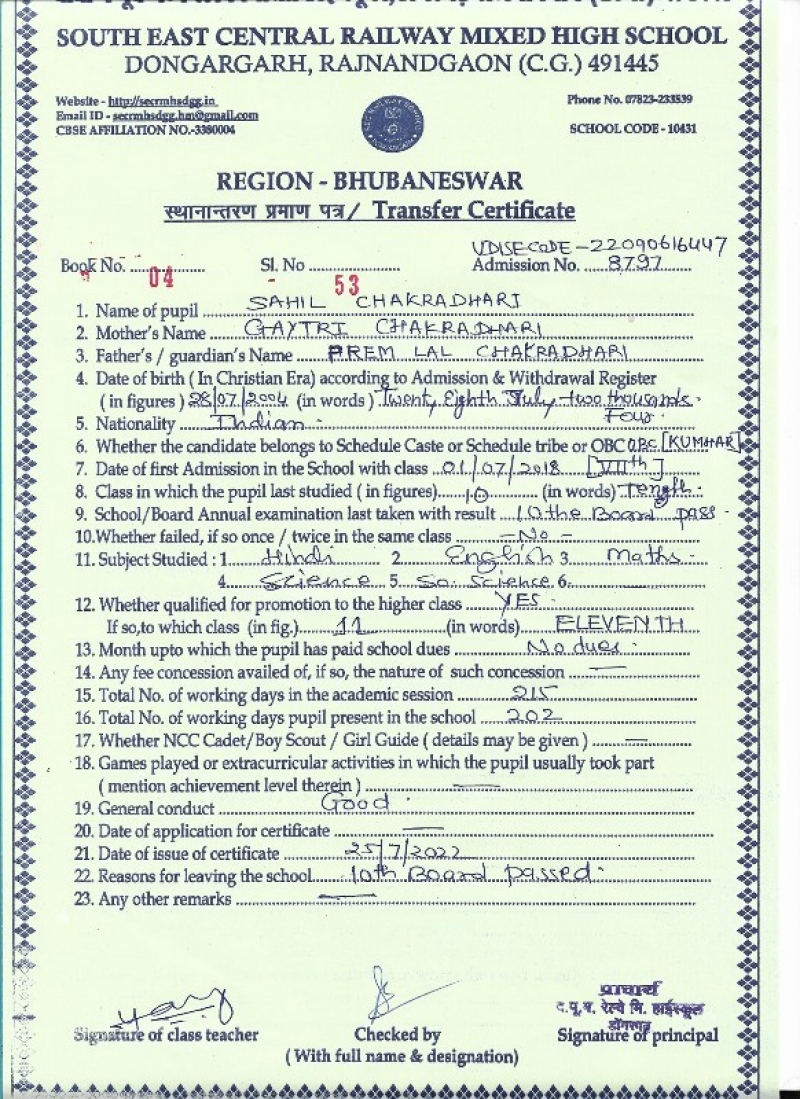 SOUTH EAST CENTRAL RAILWAY MIXED HIGH SCHOOL
DONGARGARH, RAJNANDGAON (C.G.) 491445
Website - http://secrmhsdgg.in
Phone No. 07823-233539
Email ID - secrmhsdgg.hm@gmail.com
CBSE AFFILIATION NO.-3380004
SCHOOL CODE - 10431
REGION - BHUBANESWAR
स्थानान्तरण प्रमाण पत्र / Transfer Certificate
UDISE CODE - 22090616447
Book No. 04 Sl. No 53 Admission No. 8797
1. Name of pupil SAHIL CHAKRADHARI
2. Mother's Name GAYTRI CHAKRADHARI
3. Father's / guardian's Name PREM LAL CHAKRADHARI
4. Date of birth ( In Christian Era) according to Admission & Withdrawal Register
( in figures ) 28/07/2004 (in words ) Twenty Eighth July two thousands
Four
5. Nationality Indian
6. Whether the candidate belongs to Schedule Caste or Schedule tribe or OBC OBC [KUMHAR]
7. Date of first Admission in the School with class 01/07/2018 [VIIth]
8. Class in which the pupil last studied ( in figures) 10 (in words) Tength
9. School/Board Annual examination last taken with result 10the Board pass
10.Whether failed, if so once / twice in the same class - No -
11. Subject Studied : 1 Hindi 2 English 3 Maths
4 Science 5 So. Science 6.
12. Whether qualified for promotion to the higher class YES
If so,to which class (in fig.) 11 (in words) ELEVENTH
13. Month upto which the pupil has paid school dues No dues
14. Any fee concession availed of, if so, the nature of such concession
15. Total No. of working days in the academic session 215
16. Total No. of working days pupil present in the school 202
17. Whether NCC Cadet/Boy Scout / Girl Guide ( details may be given )
18. Games played or extracurricular activities in which the pupil usually took part
( mention achievement level therein )
19. General conduct Good
20. Date of application for certificate
21. Date of issue of certificate 25/7/2022
22. Reasons for leaving the school 10th Board passed
23. Any other remarks
प्राचार्य
द.पू.म. रेल्वे मि. हाईस्कूल
डोंगरगढ़
Signature of class teacher Checked by Signature of principal
( With full name & designation)